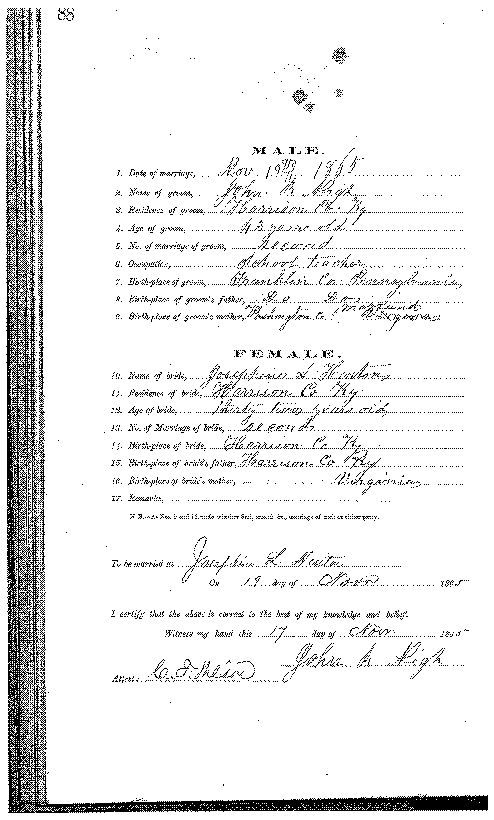 88
MALE.
1. Date of marriage, Nov. 19th 1865
2. Name of groom, John M High
3. Residence of groom, Harrison Co. Ky
4. Age of groom, 43 years old
5. No. of marriage of groom, Second
6. Occupation, School teacher
7. Birthplace of groom, Franklin Co. Pennsylvania,
8. Birthplace of groom's father, Do Do
9. Birthplace of groom's mother, Washington Co. Maryland
FEMALE.
10. Name of bride, Josephine L
11. Residence of bride, Harrison Co Ky
12. Age of bride, Thirty two years old,
13. No. of Marriage of bride, Second
14. Birthplace of bride, Harrison Co Ky
15. Birthplace of bride's father, Harrison Co Ky
16. Birthplace of bride's mother, Virginia
17. Remarks,
To be married to Josephine L
On 19 day of Novr 1865
I certify that the above is correct to the best of my knowledge and belief.
Witness my hand this 17 day of Novr 1865
John M High
Attest: C. T.